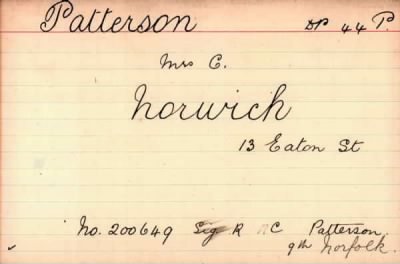 Patterson DP 44 P.
Mrs C.
Norwich
13 Eaton St
No. 200649 Sig R C Patterson.
9th Norfolk.